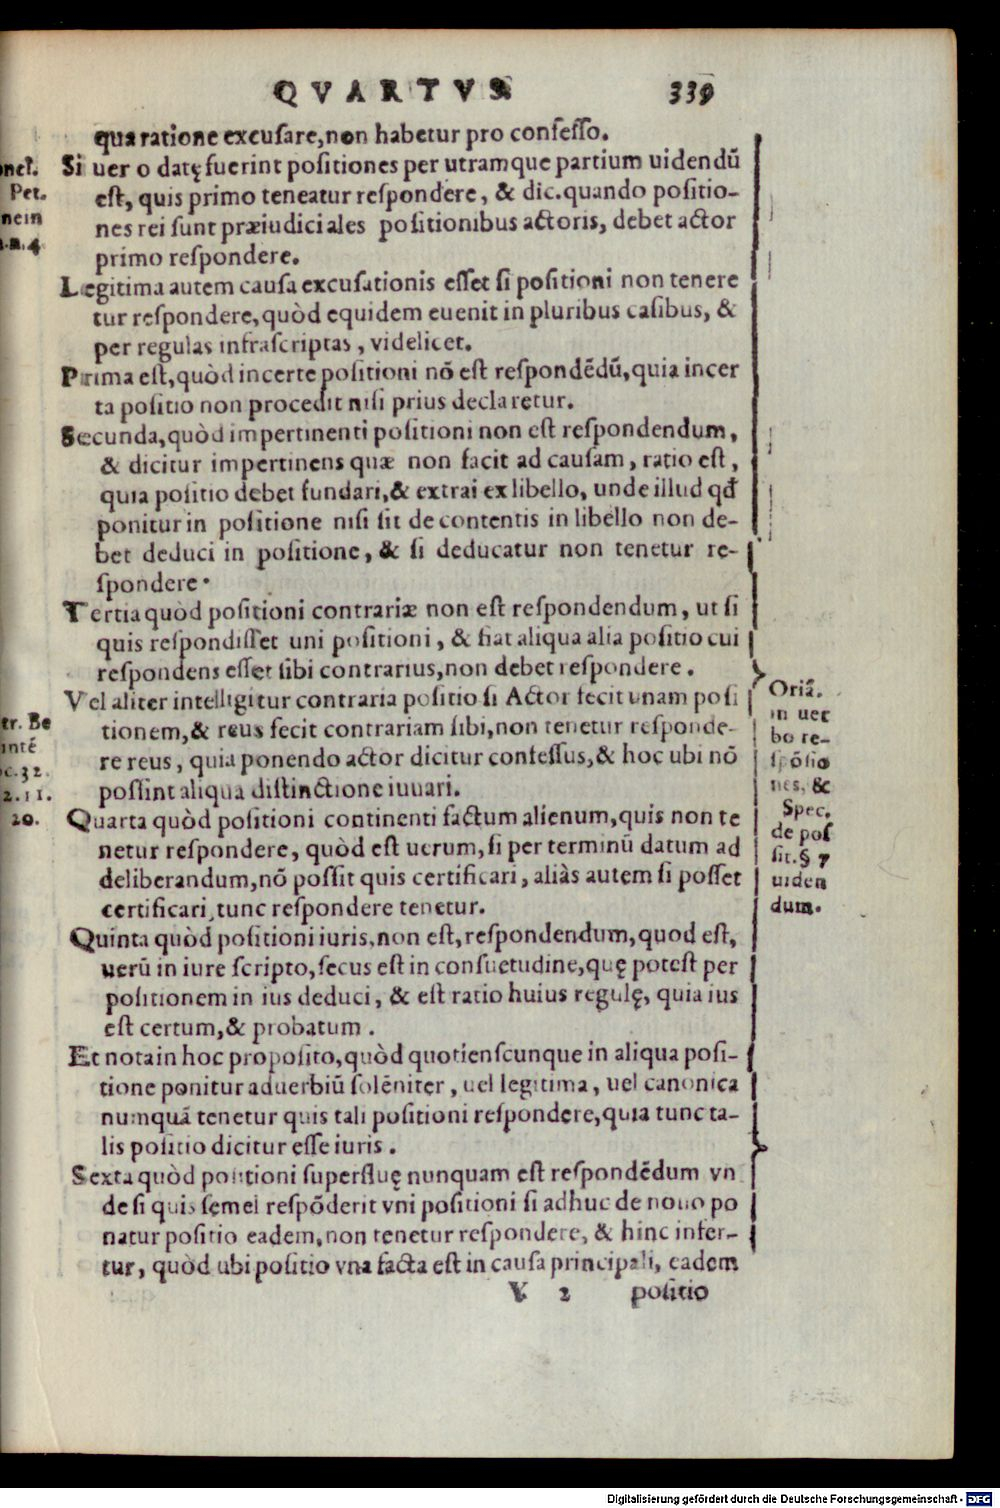 QVARTVS 339
qua ratione excusare, non habetur pro confesso.
Si uer o datę fuerint positiones per utramque partium uidendũ
est, quis primo teneatur respondere, & dic. quando positio-
nes rei sunt præiudiciales positionibus actoris, debet actor
primo respondere.
Legitima autem causa excusationis esset si positioni non tenere
tur respondere, quòd equidem euenit in pluribus casibus, &
per regulas infrascriptas, videlicet.
Prima est, quòd incerte positioni nõ est respondẽdũ, quia incer
ta positio non procedit nisi prius declaretur.
Secunda, quòd impertinenti positioni non est respondendum,
& dicitur impertinens quæ non facit ad causam, ratio est,
quia positio debet fundari, & extrai ex libello, unde illud qđ
ponitur in positione nisi sit de contentis in libello non de-
bet deduci in positione, & si deducatur non tenetur re-
spondere.
Tertia quòd positioni contrariæ non est respondendum, ut si
quis respondisset uni positioni, & fiat aliqua alia positio cui
respondens esset sibi contrarius, non debet respondere.
Vel aliter intelligitur contraria positio si Actor fecit unam posi
tionem, & reus fecit contrariam sibi, non tenetur responde-
re reus, quia ponendo actor dicitur confessus, & hoc ubi nõ
possint aliqua distinctione iuuari.
Quarta quòd positioni continenti factum alienum, quis non te
netur respondere, quòd est uerum, si per terminũ datum ad
deliberandum, nõ possit quis certificari, aliàs autem si posset
certificari, tunc respondere tenetur.
Quinta quòd positioni iuris, non est, respondendum, quod est,
uerũ in iure scripto, secus est in consuetudine, quę potest per
positionem in ius deduci, & est ratio huius regulę, quia ius
est certum, & probatum.
Et nota in hoc proposito, quòd quotienscunque in aliqua posi-
tione ponitur aduerbiũ solẽniter, uel legitima, uel canonica
numquã tenetur quis tali positioni respondere, quia tunc ta-
lis positio dicitur esse iuris.
Sexta quòd positioni superfluę nunquam est respondẽdum vn
de si quis semel respõderit vni positioni si adhuc de nouo po
natur positio eadem, non tenetur respondere, & hinc infer-
tur, quòd ubi positio vna facta est in causa principali, eadem
V 2 positio
Pet.
nem
tr. Be
32.
2.11.
20.
Oriã.
in uer
bo re-
spõsio
nes, &
Spec.
de pos
sit. § 7
uiden
dum.
Digitalisierung gefördert durch die Deutsche Forschungsgemeinschaft - DFG